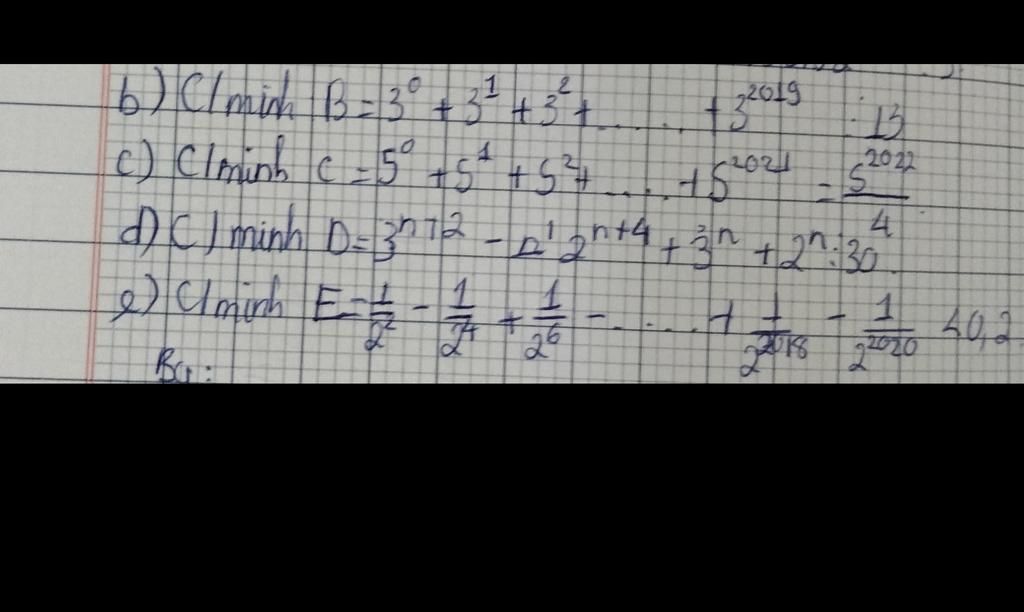 b) C/minh B = 3⁰ + 3¹ + 3² + ..... + 3²⁰¹⁹ ⋮ 13
c) C/minh C = 5⁰ + 5¹ + 5² + ..... + 5²⁰²¹ = 5²⁰²²/4
d) C/minh D = 3ⁿ⁺² - 2ⁿ⁺⁴ + 3ⁿ + 2ⁿ ⋮ 30
e) C/minh E = 1/2² - 1/2⁴ + 1/2⁶ - ..... + 1/2²⁰¹⁸ - 1/2²⁰²⁰ < 0,2
Bg: